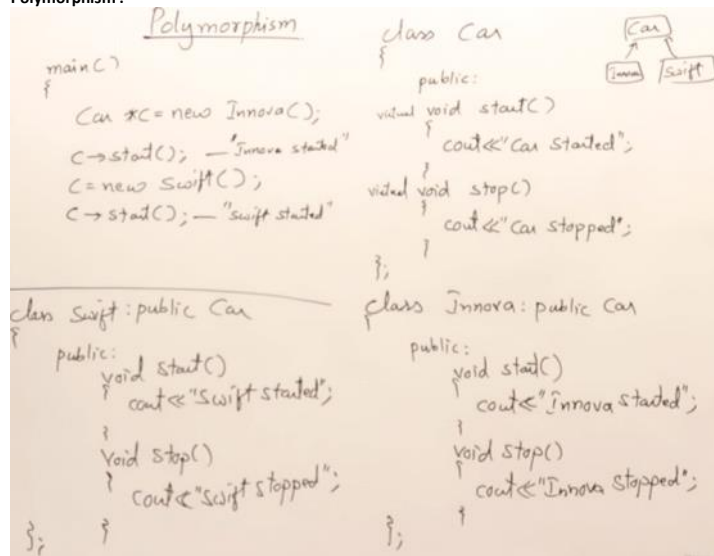 Polymorphism :
Polymorphism
main()
{
Car *C= new Innova();
C→start(); — "Innova started"
C= new Swift();
C→start(); — "swift started"
class Car
{
public:
virtual void start()
{
cout<<"Car Started";
}
virtual void stop()
{
cout<<"Car stopped";
}
};
Car
Innova Swift
class Swift : public Car
{
public:
void start()
{
cout<<"Swift started";
}
void stop()
{
cout<<"Swift stopped";
}
};
class Innova : public Car
{
public:
void start()
{
cout<<"Innova started";
}
void stop()
{
cout<<"Innova Stopped";
}
};